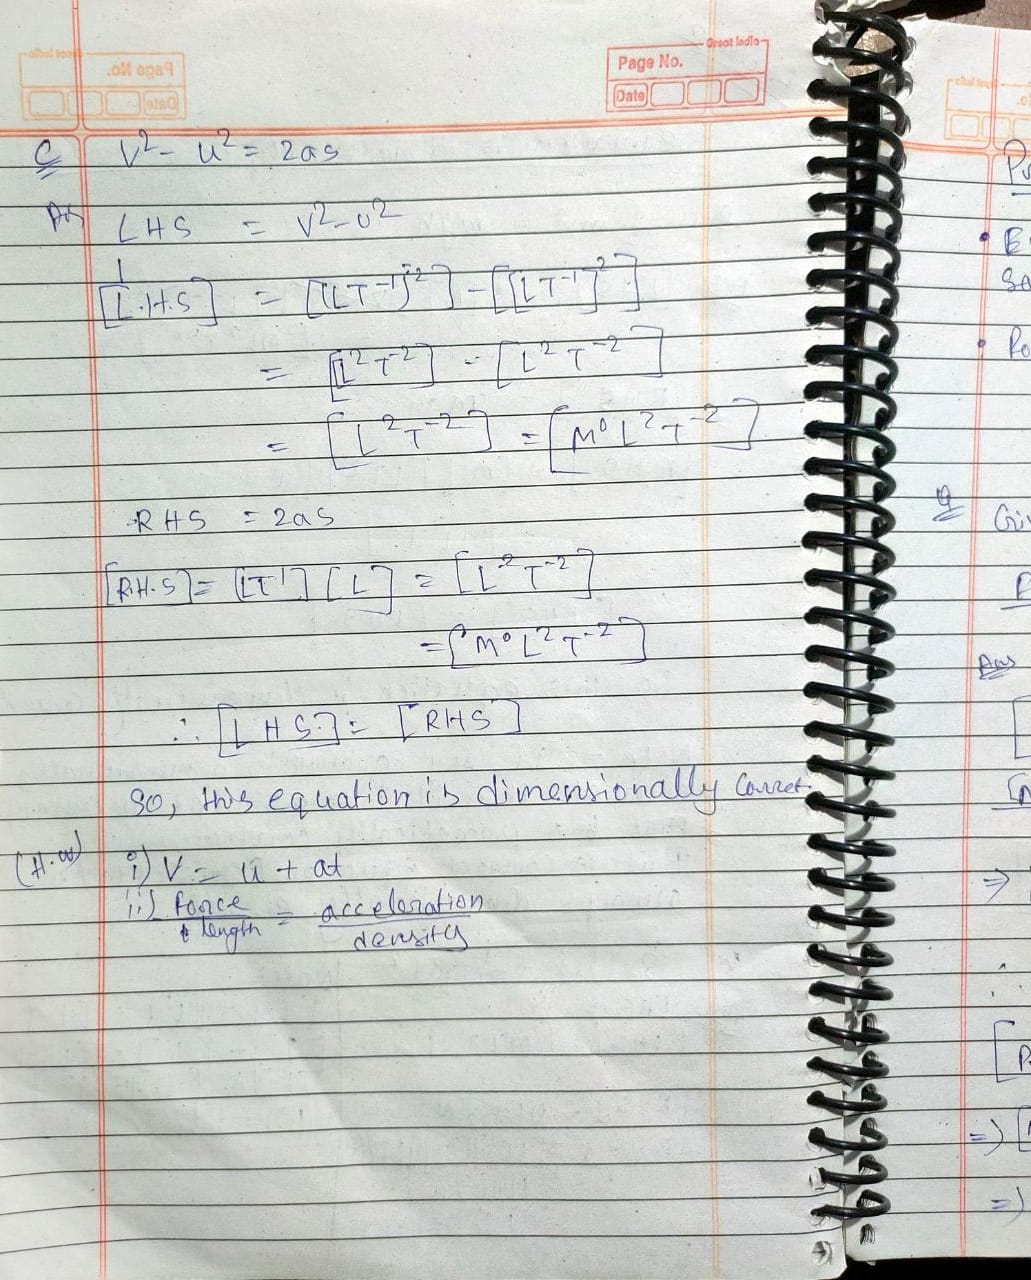 Great India
Page No.
Date
C V² - u² = 2as
Ans LHS = V² - u²
[L.H.S] = [(LT⁻¹)²] - [[LT⁻¹]²]
= [L²T⁻²] - [L²T⁻²]
= [L²T⁻²] = [M⁰L²T⁻²]
RHS = 2as
[R.H.S] = [LT¹] [L] = [L²T⁻²]
= [M⁰L²T⁻²]
∴ [LHS] = [RHS]
So, this equation is dimensionally correct.
(H.w) i) V = u + at
ii) force/length = acceleration/density
Q
Ans
⇒
⇒
⇒